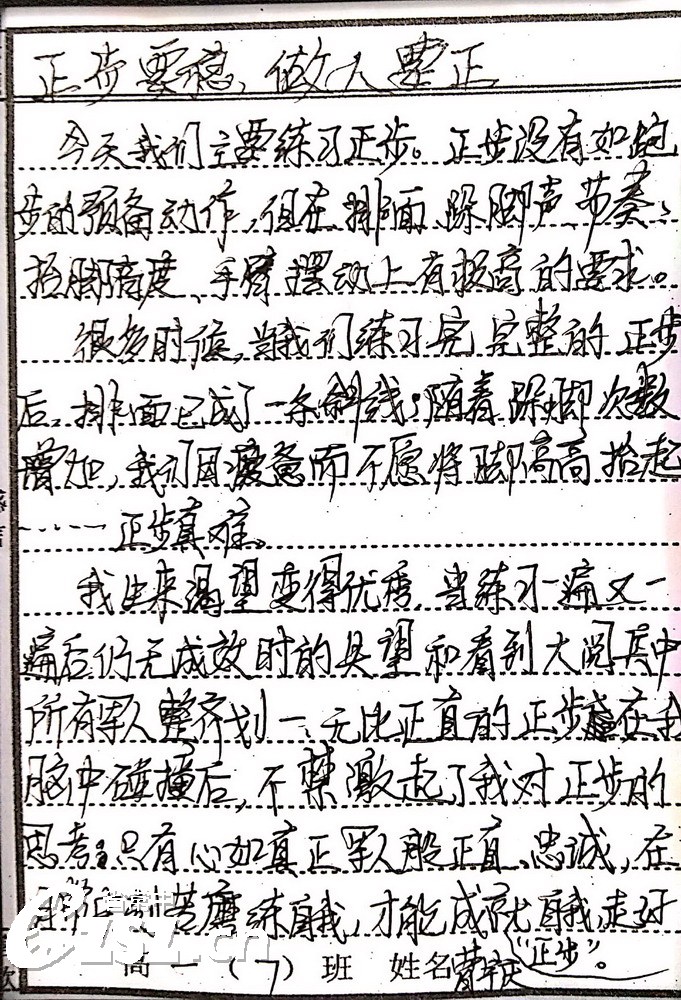 正步要稳，做人要正
今天我们主要练习正步。正步没有如跑
步的预备动作，但在排面、跺脚声、节奏、
抬脚高度、手臂摆动上有极高的要求。
很多时候，当我们练习完完整的正步
后，排面已成了一条斜线；随着跺脚次数
增加，我们因疲惫而不愿将脚高高抬起
……正步真难。
我由来渴望变得优秀，当练习一遍又一
遍后仍无成效时的失望和看到大阅兵中
所有军人整齐划一、无比正直的正步在我
脑中碰撞后，不禁激起了我对正步的
思考：只有心如真正军人般正直、忠诚，在
苦磨练自我，才能成就自我，走好
“正步”。
高一（7）班 姓名